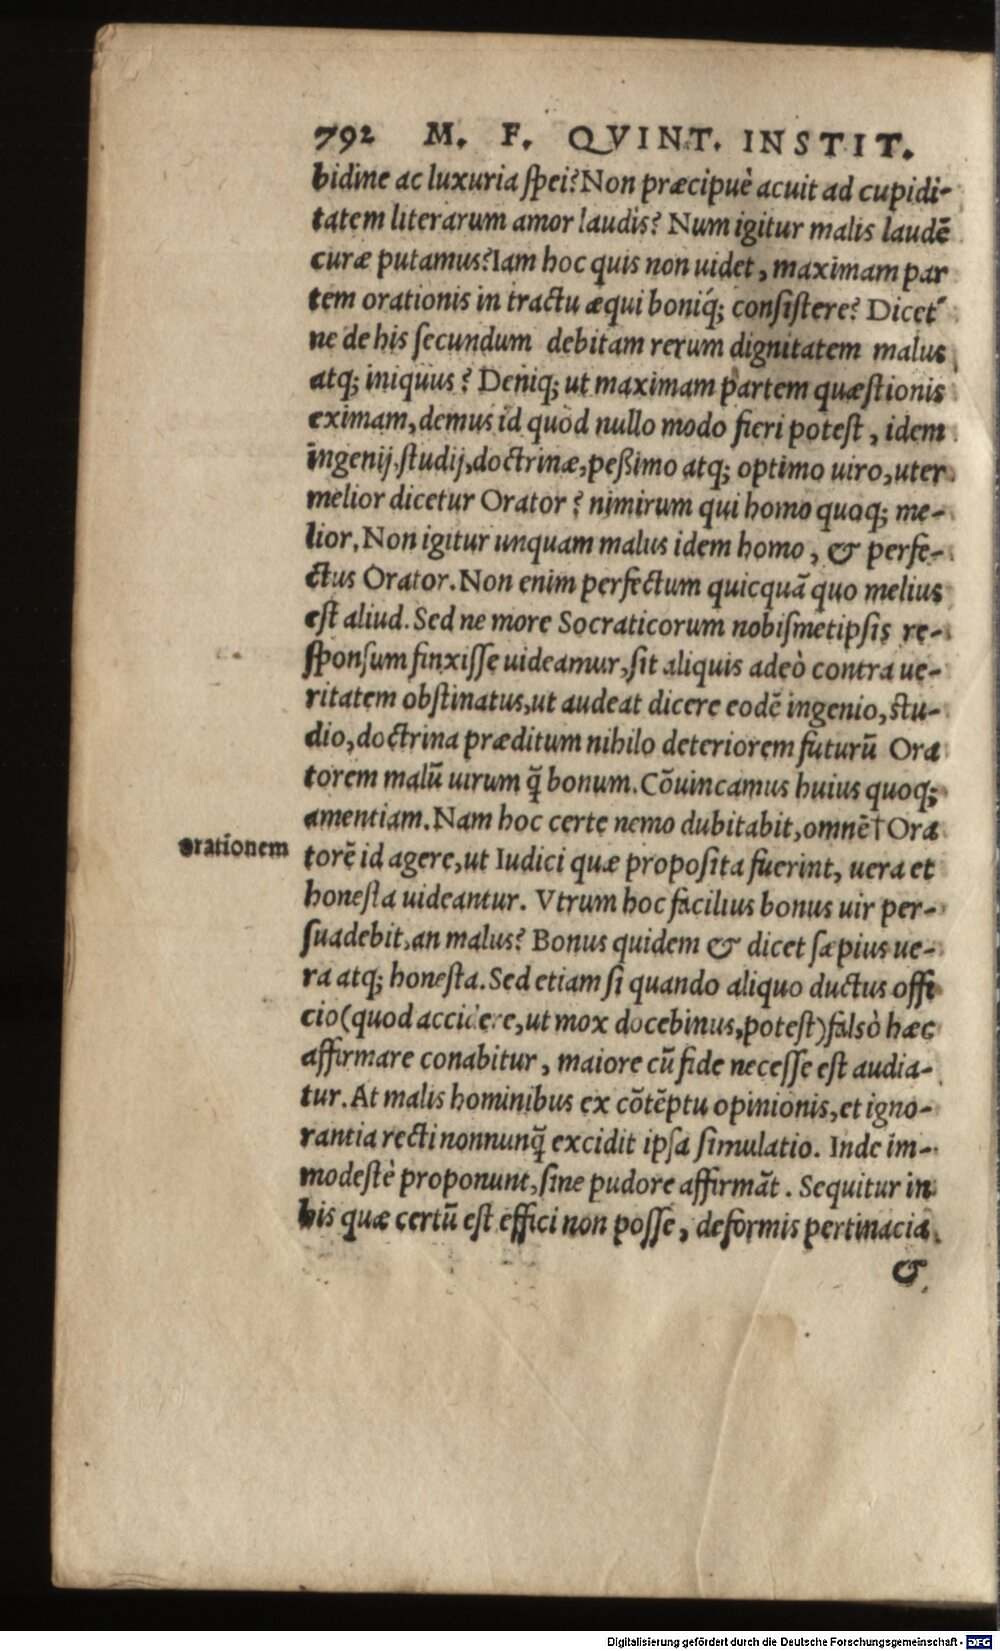 792 M. F. QVINT. INSTIT.
bidine ac luxuria spei? Non præcipuè acuit ad cupidi-
tatem literarum amor laudis? Num igitur malis laudē
curæ putamus? Iam hoc quis non uidet, maximam par
tem orationis in tractu æqui boniq́; consistere? Dicet'
ne de his secundum debitam rerum dignitatem malus
atq; iniquus? Deniq; ut maximam partem quæstionis
eximam, demus id quod nullo modo fieri potest, idem
ingenij, studij, doctrinæ, peßimo atq; optimo uiro, uter
melior dicetur Orator? nimirum qui homo quoq; me-
lior. Non igitur unquam malus idem homo, & perfe-
ctus Orator. Non enim perfectum quicquā quo melius
est aliud. Sed ne more Socraticorum nobismetipsis re-
sponsum finxisse uideamur, sit aliquis adeò contra ue-
ritatem obstinatus, ut audeat dicere eodē ingenio, stu-
dio, doctrina præditum nihilo deteriorem futurū Ora
torem malū uirum q̄ bonum. Cōuincamus huius quoq;
amentiam. Nam hoc certe nemo dubitabit, omnē† Ora
orationem
torē id agere, ut Iudici quæ proposita fuerint, uera et
honesta uideantur. Vtrum hoc facilius bonus uir per-
suadebit, an malus? Bonus quidem & dicet sæpius ue-
ra atq; honesta. Sed etiam si quando aliquo ductus offi
cio (quod accidere, ut mox docebimus, potest) falsò hæc
affirmare conabitur, maiore cū fide necesse est audia-
tur. At malis hominibus ex cōtēptu opinionis, et igno-
rantia recti nonnunq̄ excidit ipsa simulatio. Inde im-
modestè proponunt, sine pudore affirmāt. Sequitur in
his quæ certū est effici non posse, deformis pertinacia
&
Digitalisierung gefördert durch die Deutsche Forschungsgemeinschaft - DFG